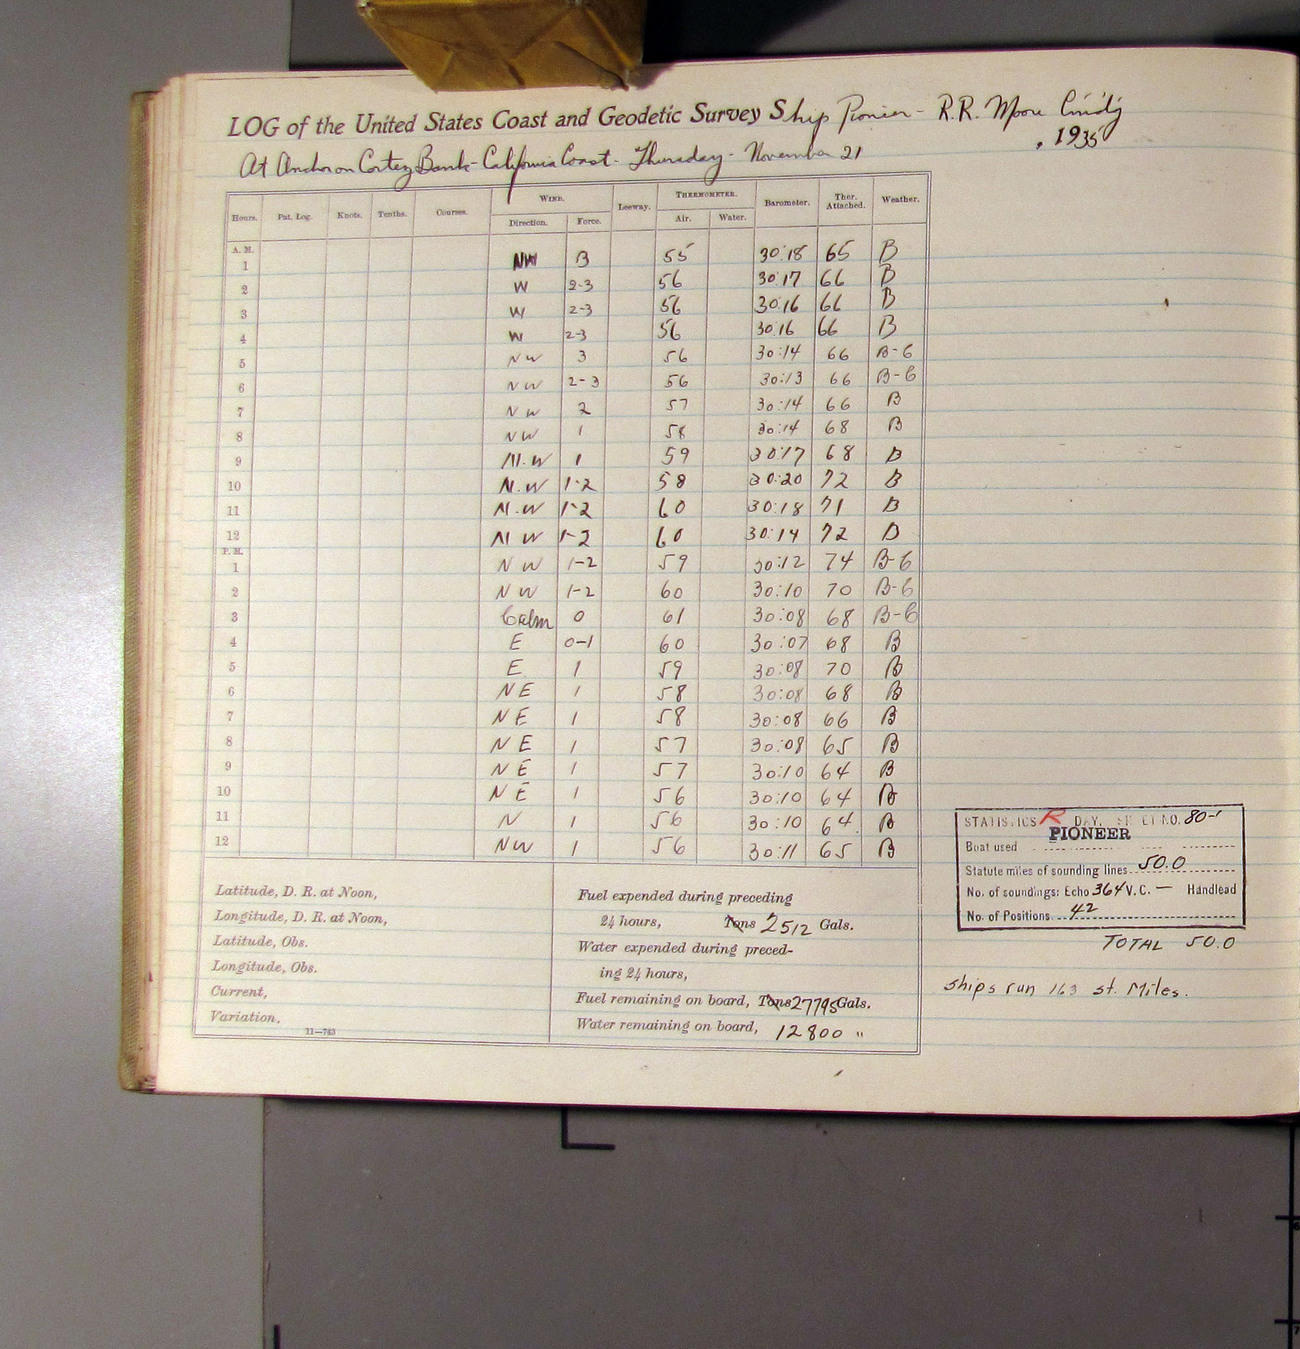 LOG of the United States Coast and Geodetic Survey Ship Pioneer - R.R. Moore Cmd'g
At Anchor on Cortez Bank - California Coast - Thursday - November 21, 1935
Hours. Pat. Log. Knots. Tenths. Courses. WIND. Leeway. THERMOMETER. Barometer. Ther. Attached. Weather.
Direction. Force. Air. Water.
A. M.
1 NW 3 55 30:18 65 B
2 W 2-3 56 30:17 66 B
3 W 2-3 56 30:16 66 B
4 W 2-3 56 30:16 66 B
5 NW 3 56 30:14 66 B-C
6 NW 2-3 56 30:13 66 B-C
7 NW 2 57 30:14 66 B
8 NW 1 58 30:14 68 B
9 N.W 1 59 30:17 68 B
10 N.W 1-2 58 30:20 72 B
11 N.W 1-2 60 30:18 71 B
12 NW 1-2 60 30:14 72 B
P. M.
1 NW 1-2 59 30:12 74 B-C
2 NW 1-2 60 30:10 70 B-C
3 Calm 0 61 30:08 68 B-C
4 E 0-1 60 30:07 68 B
5 E 1 59 30:08 70 B
6 NE 1 58 30:08 68 B
7 NE 1 58 30:08 66 B
8 NE 1 57 30:08 65 B
9 NE 1 57 30:10 64 B
10 NE 1 56 30:10 64 B
11 N 1 56 30:10 64 B
12 NW 1 56 30:11 65 B
Latitude, D. R. at Noon,
Longitude, D. R. at Noon,
Latitude, Obs.
Longitude, Obs.
Current,
Variation,
11—763
Fuel expended during preceding
24 hours, Tons 2512 Gals.
Water expended during preced-
ing 24 hours,
Fuel remaining on board, Tons 27795 Gals.
Water remaining on board, 12800 "
STATISTICS R DAY, SHEET NO. 80-1
PIONEER
Boat used
Statute miles of sounding lines 50.0
No. of soundings: Echo 364 V.C. — Handlead
No. of Positions 42
TOTAL 50.0
Ships run 163 st. Miles.